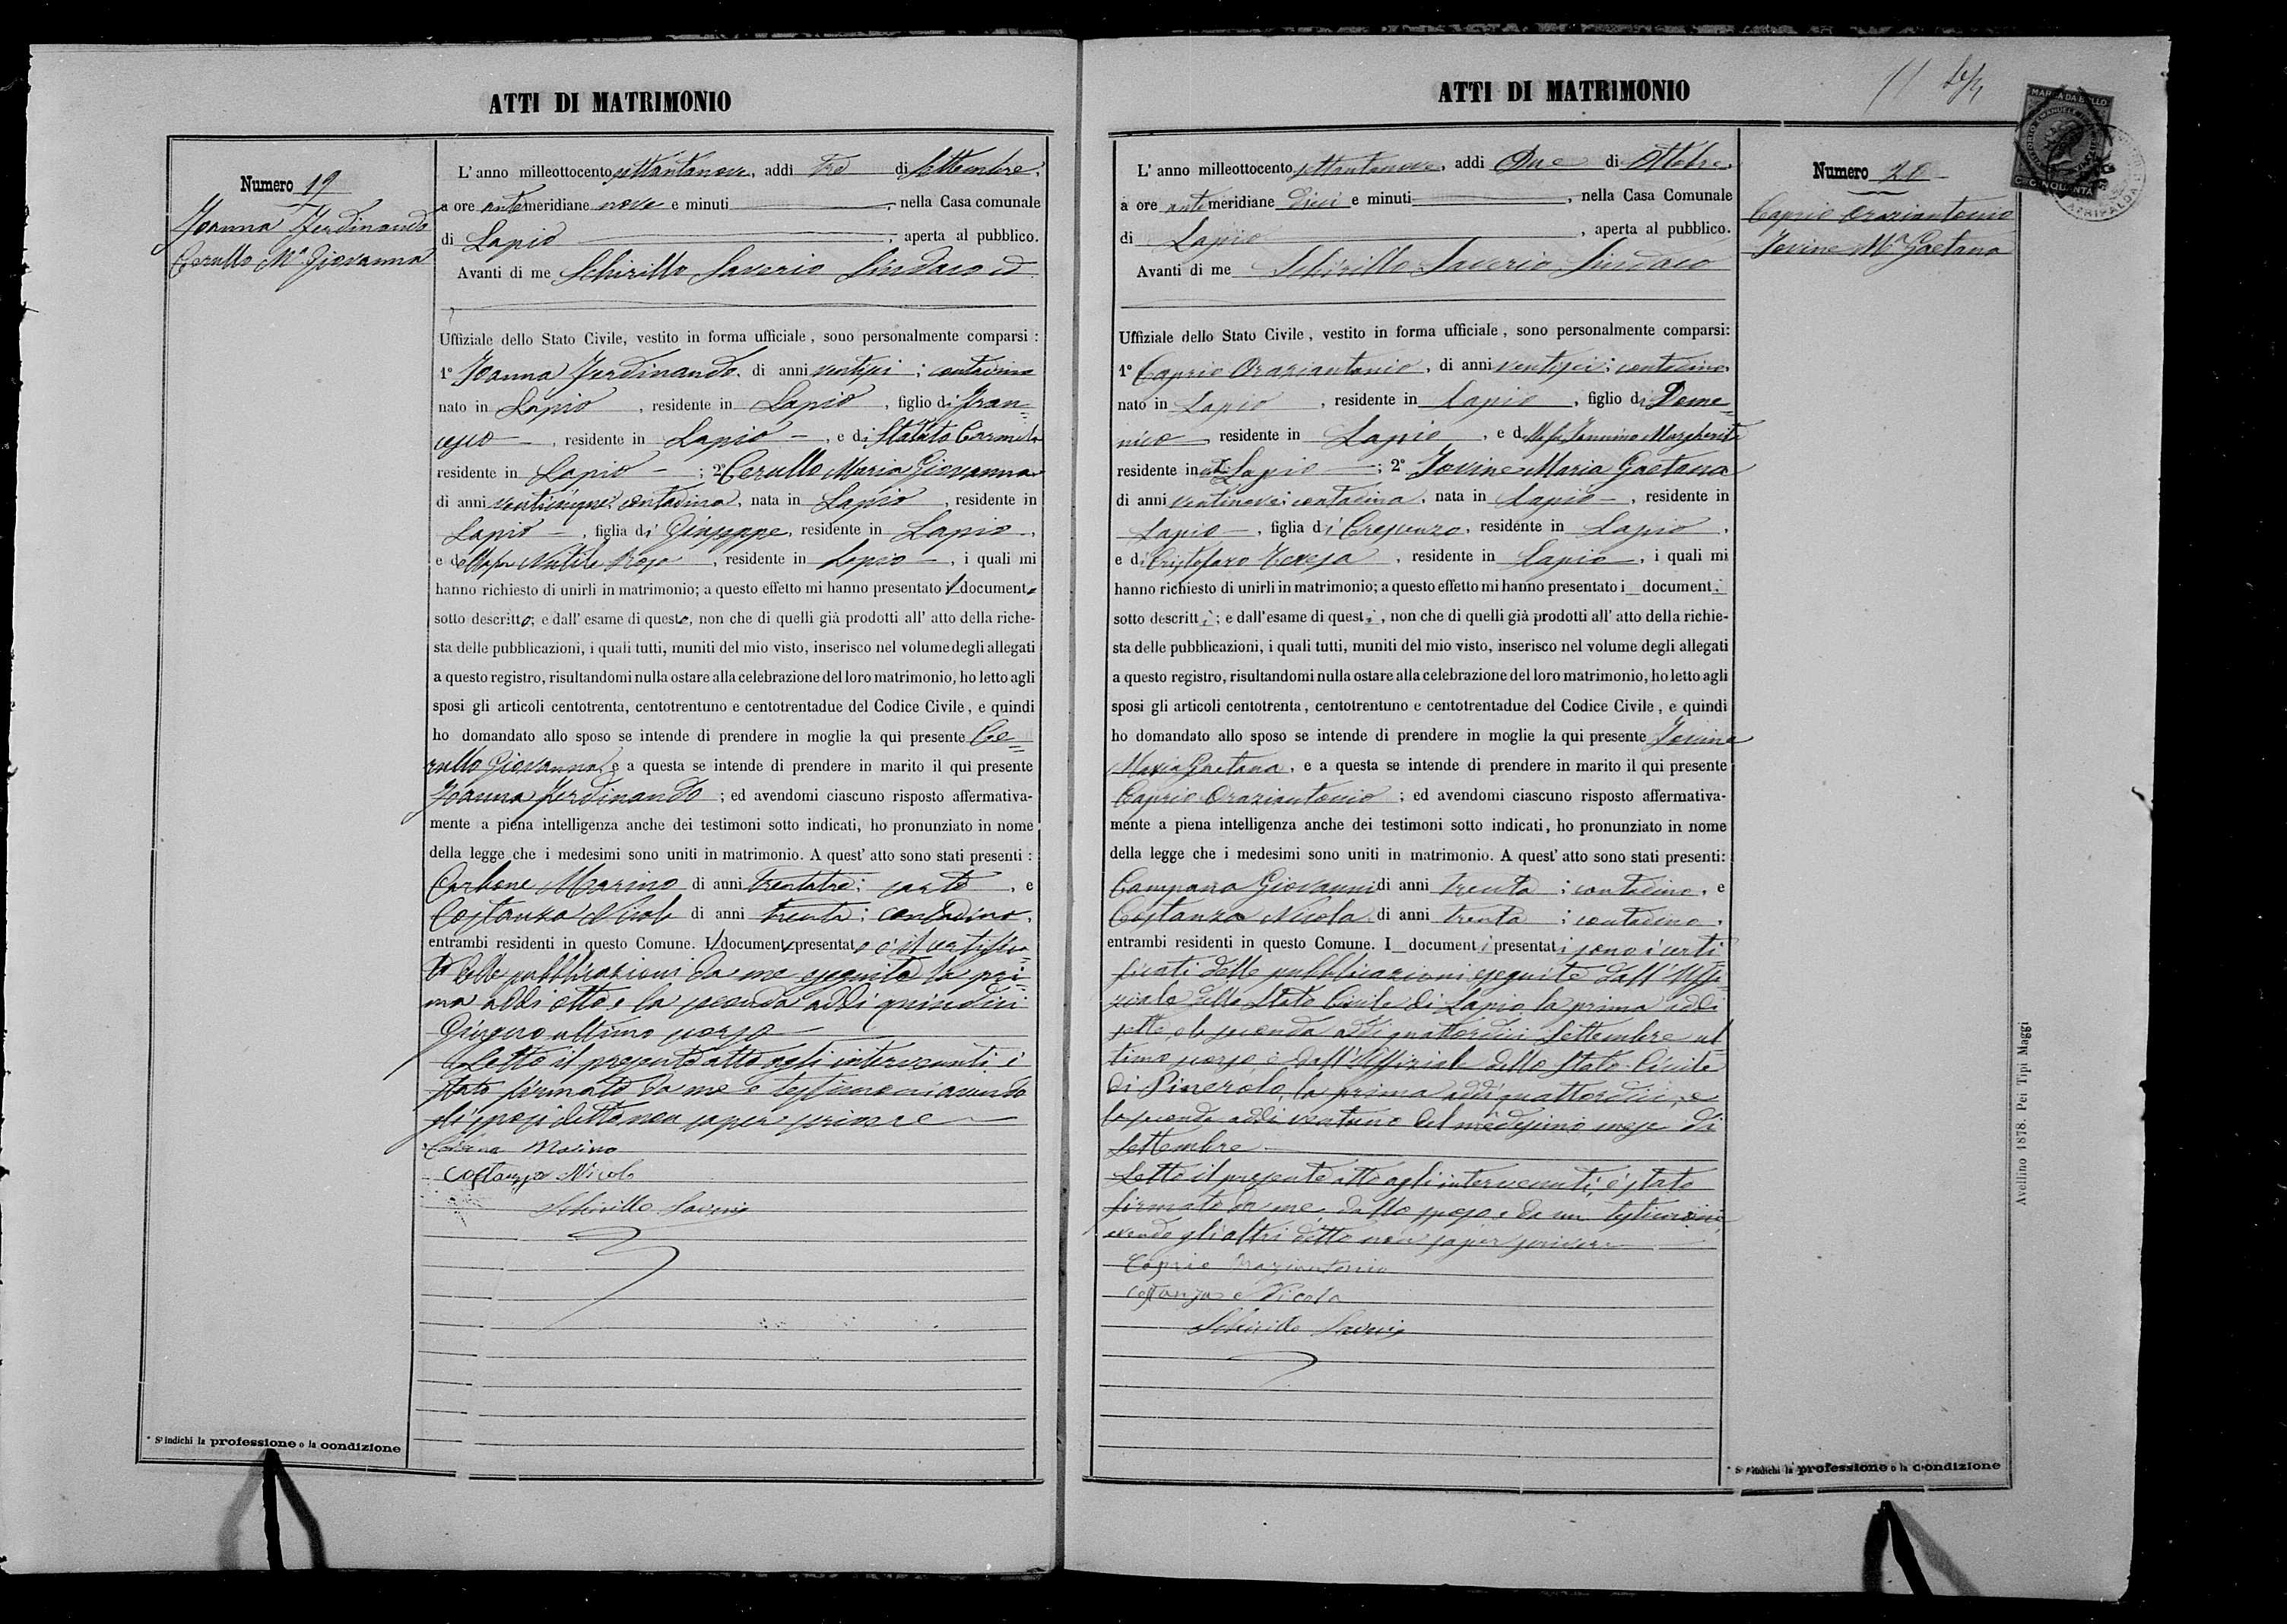 ATTI DI MATRIMONIO
Numero 19
Joanna Ferdinando
Cerullo Mª Giovanna
L'anno milleottocento settantanove, addi tre di Settembre,
a ore antemeridiane nove e minuti , nella Casa comunale
di Lapio , aperta al pubblico.
Avanti di me Schirillo Saverio Sindaco ed
Uffiziale dello Stato Civile, vestito in forma ufficiale, sono personalmente comparsi:
1° Joanna Ferdinando, di anni ventisei; contadino
nato in Lapio , residente in Lapio , figlio di Fran=
cesco , residente in Lapio , e di Carmela
residente in Lapio ; 2° Cerullo Maria Giovanna
di anni venticinque; contadina, nata in Lapio , residente in
Lapio , figlia di Giuseppe, residente in Lapio ,
e della fu Rosa , residente in Lapio , i quali mi
hanno richiesto di unirli in matrimonio; a questo effetto mi hanno presentato il documento
sotto descritto; e dall'esame di questo, non che di quelli già prodotti all'atto della riche-
sta delle pubblicazioni, i quali tutti, muniti del mio visto, inserisco nel volume degli allegati
a questo registro, risultandomi nulla ostare alla celebrazione del loro matrimonio, ho letto agli
sposi gli articoli centotrenta, centotrentuno e centotrentadue del Codice Civile, e quindi
ho domandato allo sposo se intende di prendere in moglie la qui presente Ce=
rullo Giovanna, e a questa se intende di prendere in marito il qui presente
Joanna Ferdinando ; ed avendomi ciascuno risposto affermativa-
mente a piena intelligenza anche dei testimoni sotto indicati, ho pronunziato in nome
della legge che i medesimi sono uniti in matrimonio. A quest'atto sono stati presenti:
Carbone Marino di anni trentatre; sarto , e
Costanza Nicola di anni trenta; contadino,
entrambi residenti in questo Comune. Il documento presentato è il certifica=
to delle pubblicazioni da me eseguite la pri=
ma addi otto e la seconda addi quindici
Giugno ultimo scorso
Letto il presente atto agli intervenuti è
stato firmato da me e testimoni avendo
gli sposi detto non saper scrivere
Marino
Costanza Nicola
Schirillo Saverio
* S'indichi la professione o la condizione
ATTI DI MATRIMONIO
11
MARCA DA BOLLO
C. CINQUANTA
ATRIPALDA
Numero 20
Caprio Oraziantonio
Jovine Mª Gaetana
L'anno milleottocento settantanove, addi Due di Ottobre,
a ore antimeridiane dieci e minuti , nella Casa Comunale
di Lapio , aperta al pubblico.
Avanti di me Schirillo Saverio Sindaco
Uffiziale dello Stato Civile, vestito in forma ufficiale, sono personalmente comparsi:
1° Caprio Oraziantonio, di anni ventisei; contadino,
nato in Lapio , residente in Lapio , figlio di Dome=
nico residente in Lapio , e della fu Margherita
residente in Lapio ; 2° Jovine Maria Gaetana
di anni ventinove; contadina, nata in Lapio , residente in
Lapio , figlia di Crescenzo, residente in Lapio ,
e di Cristofaro Teresa , residente in Lapio , i quali mi
hanno richiesto di unirli in matrimonio; a questo effetto mi hanno presentato i documenti
sotto descritti; e dall'esame di questi, non che di quelli già prodotti all'atto della richie-
sta delle pubblicazioni, i quali tutti, muniti del mio visto, inserisco nel volume degli allegati
a questo registro, risultandomi nulla ostare alla celebrazione del loro matrimonio, ho letto agli
sposi gli articoli centotrenta, centotrentuno e centotrentadue del Codice Civile, e quindi
ho domandato allo sposo se intende di prendere in moglie la qui presente Jovine
Maria Gaetana, e a questa se intende di prendere in marito il qui presente
Caprio Oraziantonio ; ed avendomi ciascuno risposto affermativa-
mente a piena intelligenza anche dei testimoni sotto indicati, ho pronunziato in nome
della legge che i medesimi sono uniti in matrimonio. A quest'atto sono stati presenti:
Campana Giovanni di anni trenta ; contadino, e
Costanza Nicola di anni trenta ; contadino,
entrambi residenti in questo Comune. I documenti presentati sono i certi=
ficati delle pubblicazioni eseguite dall'Uffi=
ziale dello Stato Civile di Lapio la prima addi
sette, e la seconda addi quattordici Settembre ul=
timo scorso, e dall'Uffiziale dello Stato Civile
di Pinerolo, la prima addi quattordici, e
la seconda addi ventuno del medesimo mese di
Settembre
Letto il presente atto agli intervenuti, è stato
firmato da me, dallo sposo e da un testimonio,
avendo gli altri detto non saper scrivere
Caprio Oraziantonio
Costanza Nicola
Schirillo Saverio
* S'indichi la professione o la condizione
Avellino 1878. Pei Tipi Maggi